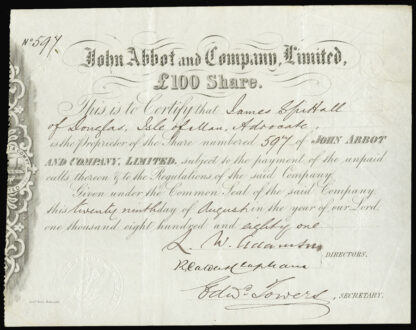 No 597.
John Abbot and Company, Limited,
£100 Share.
This is to Certify that James Spittall
of Douglas, Isle of Man, Advocate,
is the Proprietor of the Share numbered 597 of JOHN ABBOT
AND COMPANY, LIMITED. subject to the payment of the unpaid
calls thereon & to the Regulations of the said Company.
Given under the Common Seal of the said Company,
this twenty ninth day of August in the year of our Lord,
one thousand eight hundred and eighty one
L. W. Adamson
DIRECTORS.
Edwd. Towers, SECRETARY.